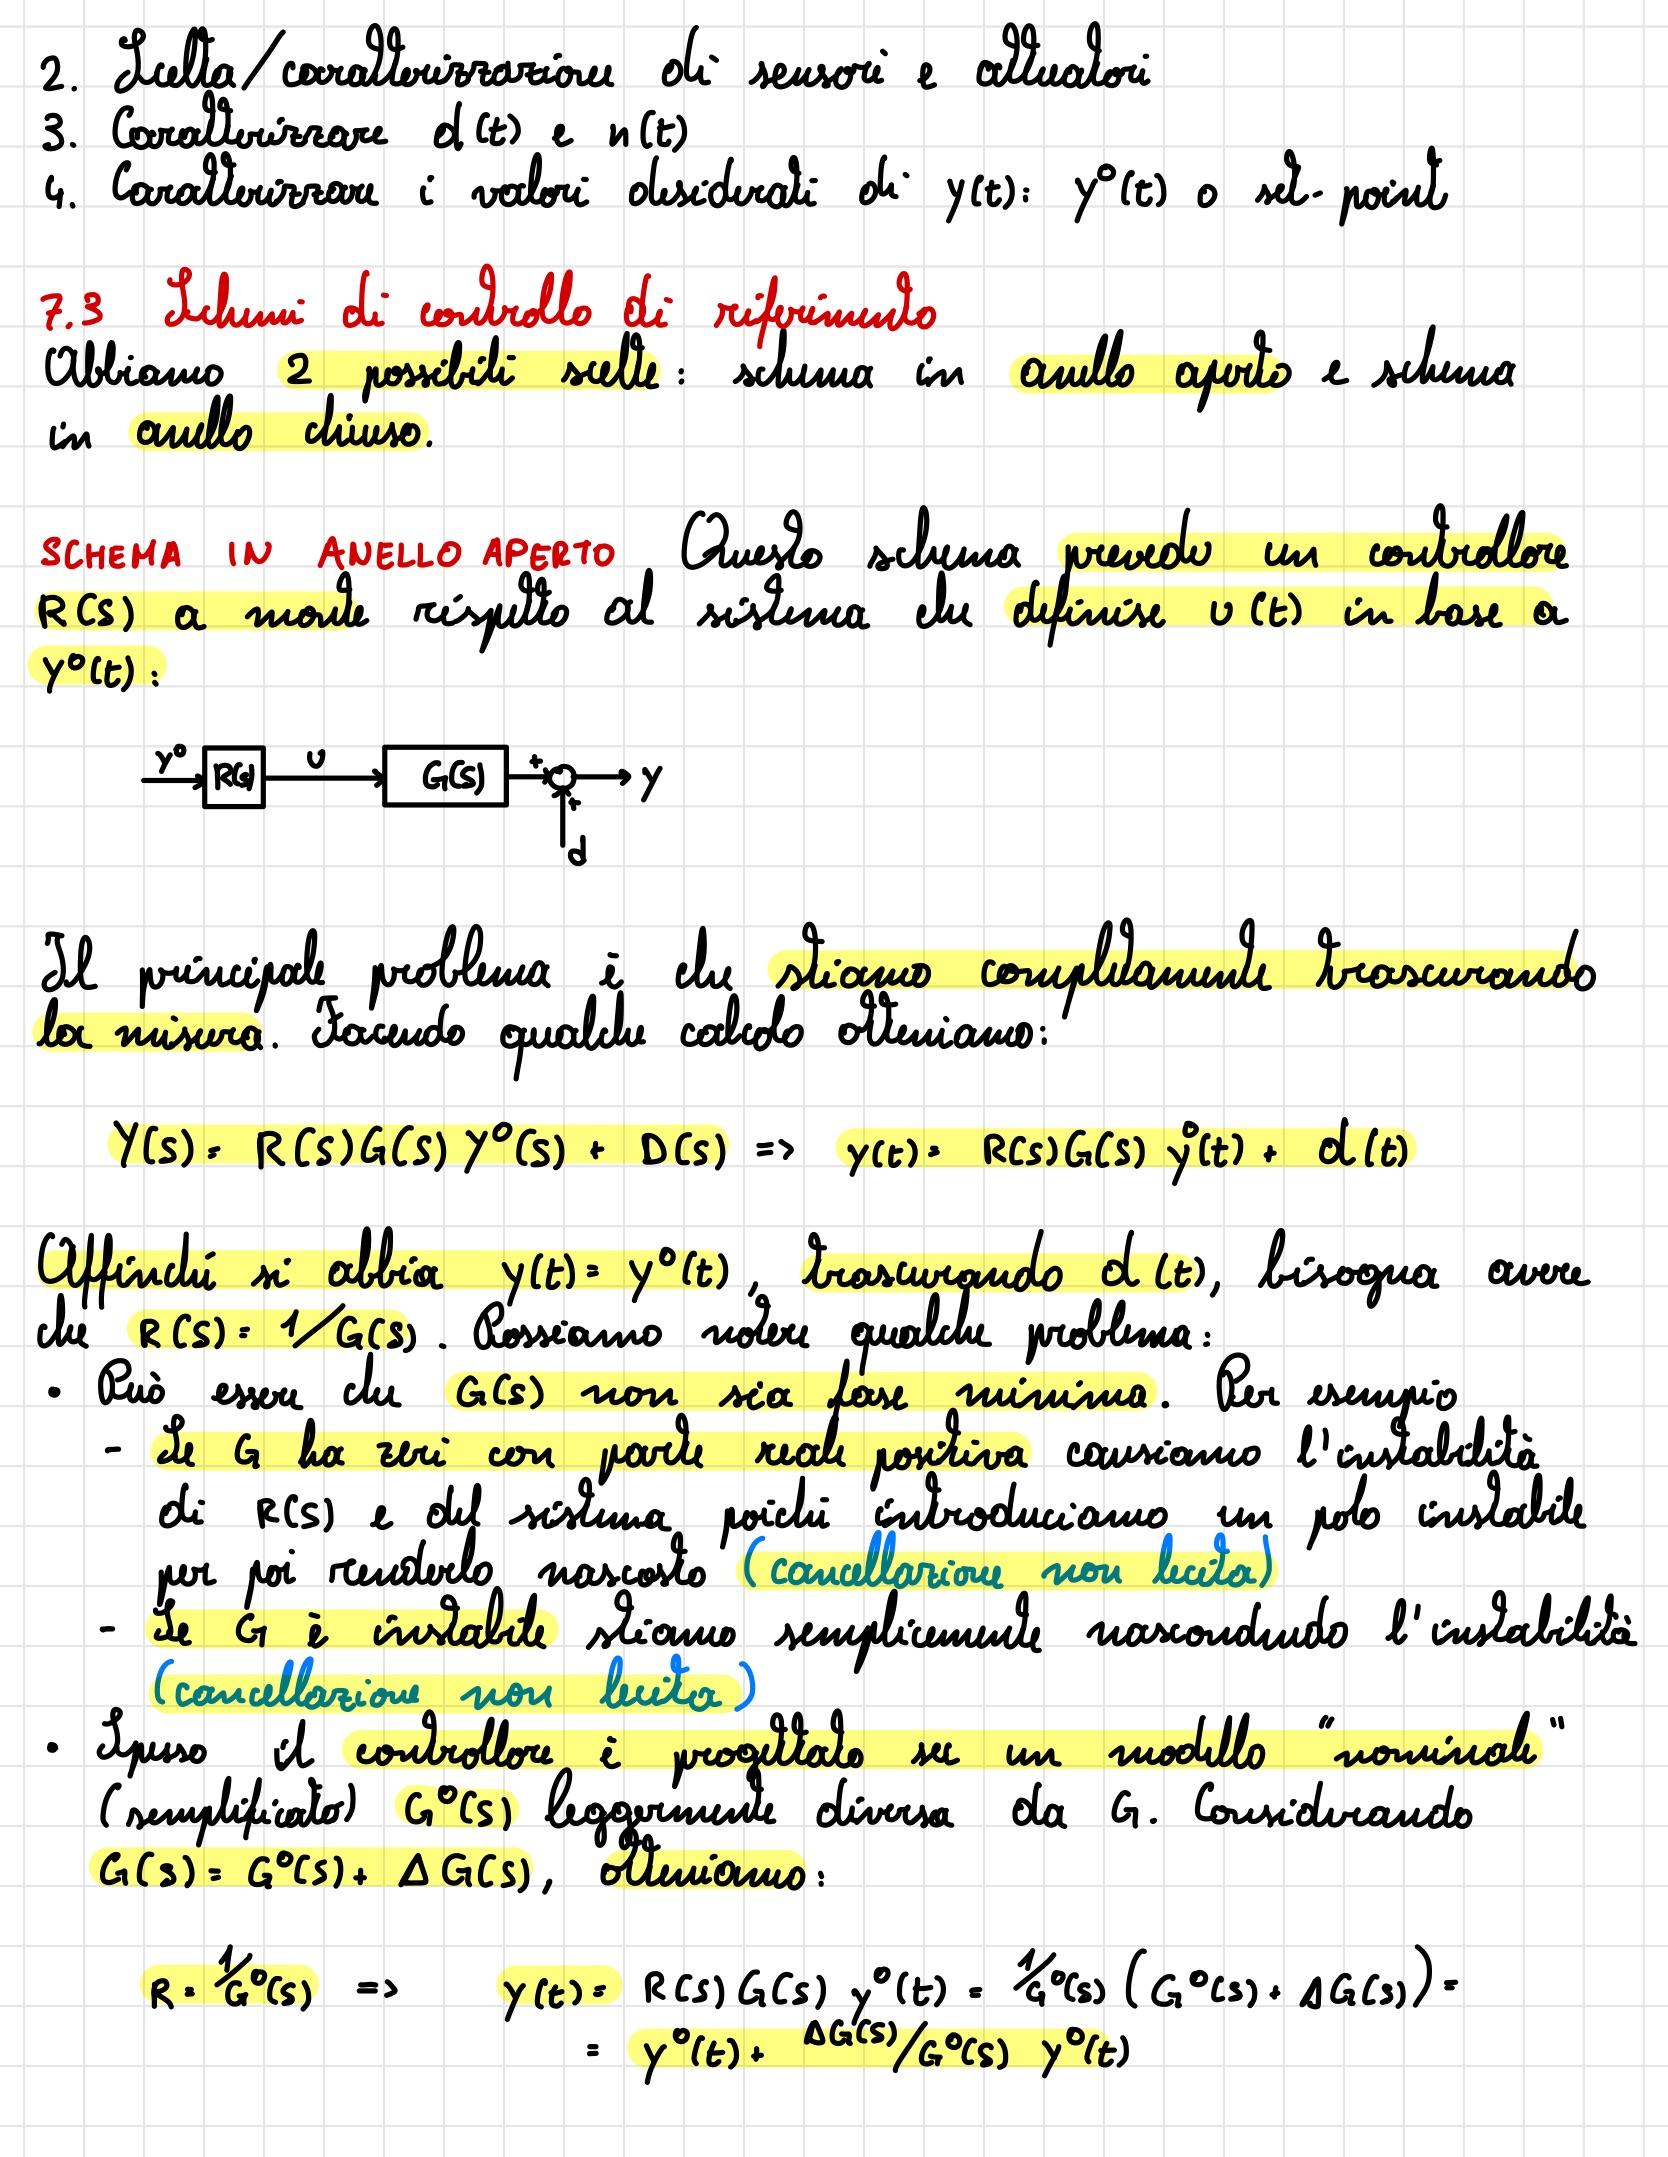 2. Scelta/caratterizzazione di sensori e attuatori
3. Caratterizzare d(t) e n(t)
4. Caratterizzare i valori desiderati di y(t): y°(t) o set-point
7.3 Schemi di controllo di riferimento
Abbiamo 2 possibili scelte: schema in anello aperto e schema
in anello chiuso.
SCHEMA IN ANELLO APERTO Questo schema prevede un controllore
R(s) a monte rispetto al sistema che definise u(t) in base a
y°(t):
y° R(s) u G(s) + y
+
d
Il principale problema è che stiamo completamente trascurando
la misura. Facendo qualche calcolo otteniamo:
Y(s) = R(s)G(s) Y°(s) + D(s) => y(t) = R(s)G(s) y°(t) + d(t)
Affinché si abbia y(t) = y°(t), trascurando d(t), bisogna avere
che R(s) = 1/G(s). Possiamo notere qualche problema:
• Può essere che G(s) non sia fase minima. Per esempio
- Se G ha zeri con parte reale positiva causiamo l'instabilità
di R(s) e del sistema poiché introduciamo un polo instabile
per poi renderlo nascosto (cancellazione non lecita)
- Se G è instabile stiamo semplicemente nascondendo l'instabilità
(cancellazione non lecita)
• Spesso il controllore è progettato su un modello "nominale"
(semplificato) G°(s) leggermente diversa da G. Considerando
G(s) = G°(s) + ΔG(s), otteniamo:
R = 1/G°(s) => y(t) = R(s)G(s) y°(t) = 1/G°(s) (G°(s) + ΔG(s)) =
= y°(t) + ΔG(s)/G°(s) y°(t)